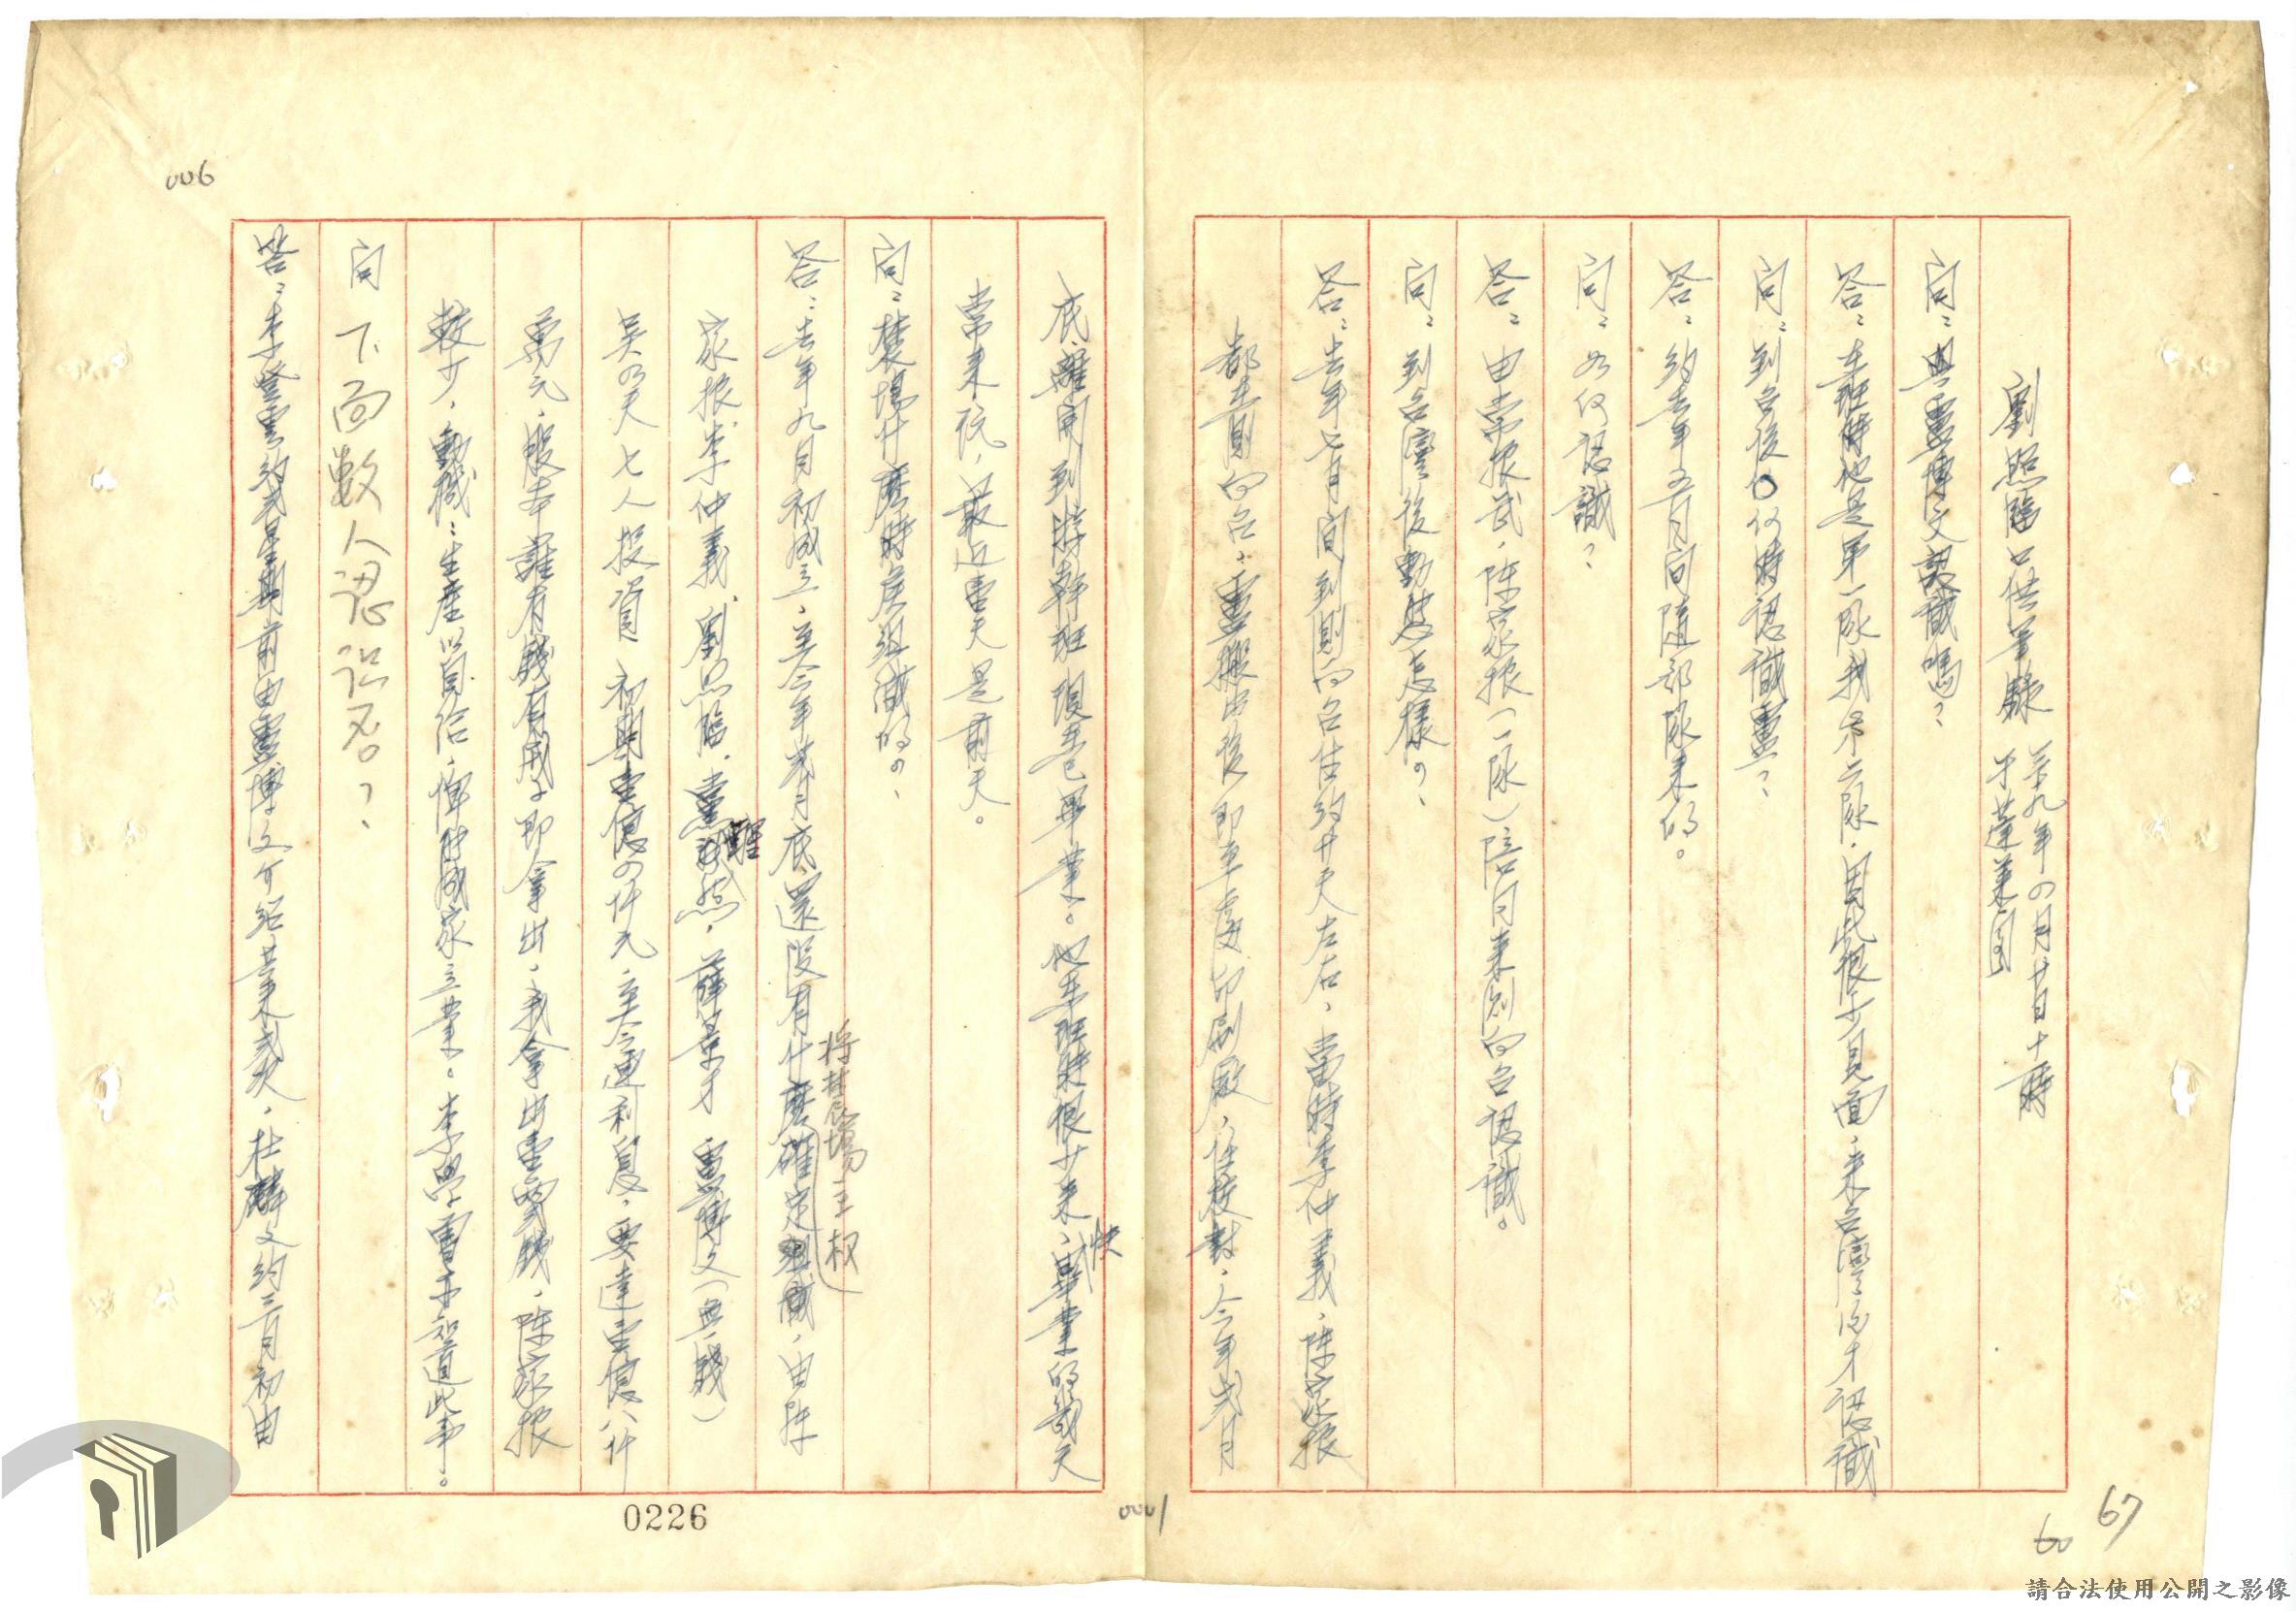 劉照臨口供筆錄 卅九年四月廿日十時
於蓬萊閣
問：與盧博文認識嗎？
答：在班時他是第一隊我第二隊，因此很少見面，來台灣後才認識
問：到台後何時認識盧？
答：約去年五月間隨部隊來的。
問：如何認識？
答：由常振武，陳家振（一隊）陪同來劍向台認識。
問：到台灣後動態怎樣？
答：去年七月間到向台住約廿天左右，當時李仲義，陳家振
都在向台，盧搬出後即在印刷廠，任校對，今年弍月
底離開到幹班現在已畢業。他在班時很少來，快畢業的幾天
常來玩，最近一天是前天。
問：農場什麼時候組織的？
答：去年九月初成立，至今年叁月底還沒有什麼確定組織，由陳
將農場主权
家振，李仲義，劉照臨，薛景才 盧博文（無錢）
吳乃天七人投資 初期壹億四仟元，至今連利息，要達壹億八仟
萬元，股本誰有錢有用即拿出，我拿出錢，陳家振
較少，動機：生產以自給，俾能成家立業。李學曾亦知道此事。
問 下面數人認识否？
答：李登雲約弍星期前由盧博文介紹來弍次，杜麟文約三月初由
006
0226
0001
67
60
請合法使用公開之影像